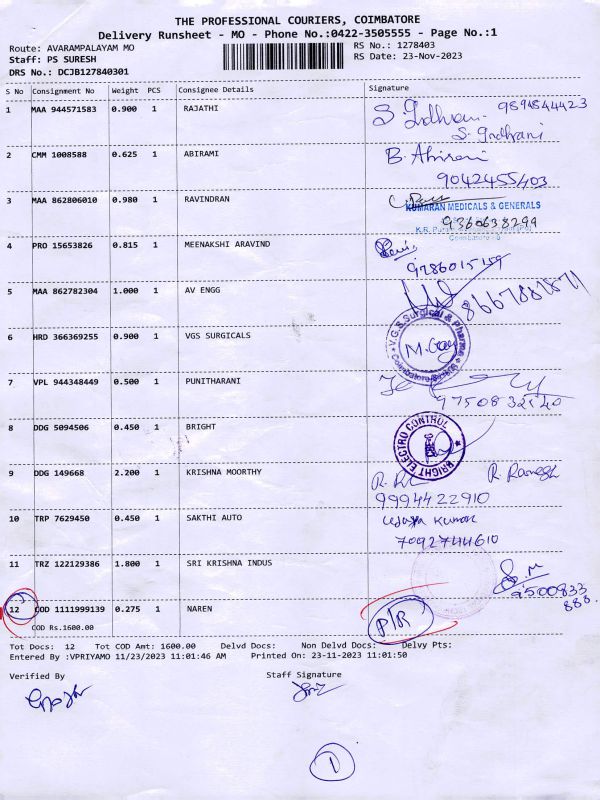 THE PROFESSIONAL COURIERS, COIMBATORE
Delivery Runsheet - MO - Phone No.:0422-3505555 - Page No.:1
Route: AVARAMPALAYAM MO RS No.: 1278403
Staff: PS SURESH RS Date: 23-Nov-2023
DRS No.: DCJB127840301
S No Consignment No Weight PCS Consignee Details Signature
1 MAA 944571583 0.900 1 RAJATHI S. Indhrani 9894844423
S. Indhrani
2 CMM 1008588 0.625 1 ABIRAMI B. Abirami
9042455403
3 MAA 862806010 0.980 1 RAVINDRAN
KUMARAN MEDICALS & GENERALS
9360638299
Coimbatore - 6
4 PRO 15653826 0.815 1 MEENAKSHI ARAVIND
9786015159
5 MAA 862782304 1.000 1 AV ENGG
6 HRD 366369255 0.900 1 VGS SURGICALS V.G.S. Surgical & Pharma
7 VPL 944348449 0.500 1 PUNITHARANI
9750832540
8 DDG 5094506 0.450 1 BRIGHT BRIGHT ELECTRO CONTROL
9 DDG 149668 2.200 1 KRISHNA MOORTHY R. Ramesh
9994422910
10 TRP 7629450 0.450 1 SAKTHI AUTO Udaya Kumar
7092744610
11 TRZ 122129386 1.800 1 SRI KRISHNA INDUS
9500833
888.
12 COD 1111999139 0.275 1 NAREN P/R
COD Rs.1600.00
Tot Docs: 12 Tot COD Amt: 1600.00 Delvd Docs: Non Delvd Docs: Delvy Pts:
Entered By :VPRIYAMO 11/23/2023 11:01:46 AM Printed On: 23-11-2023 11:01:50
Verified By Staff Signature
1